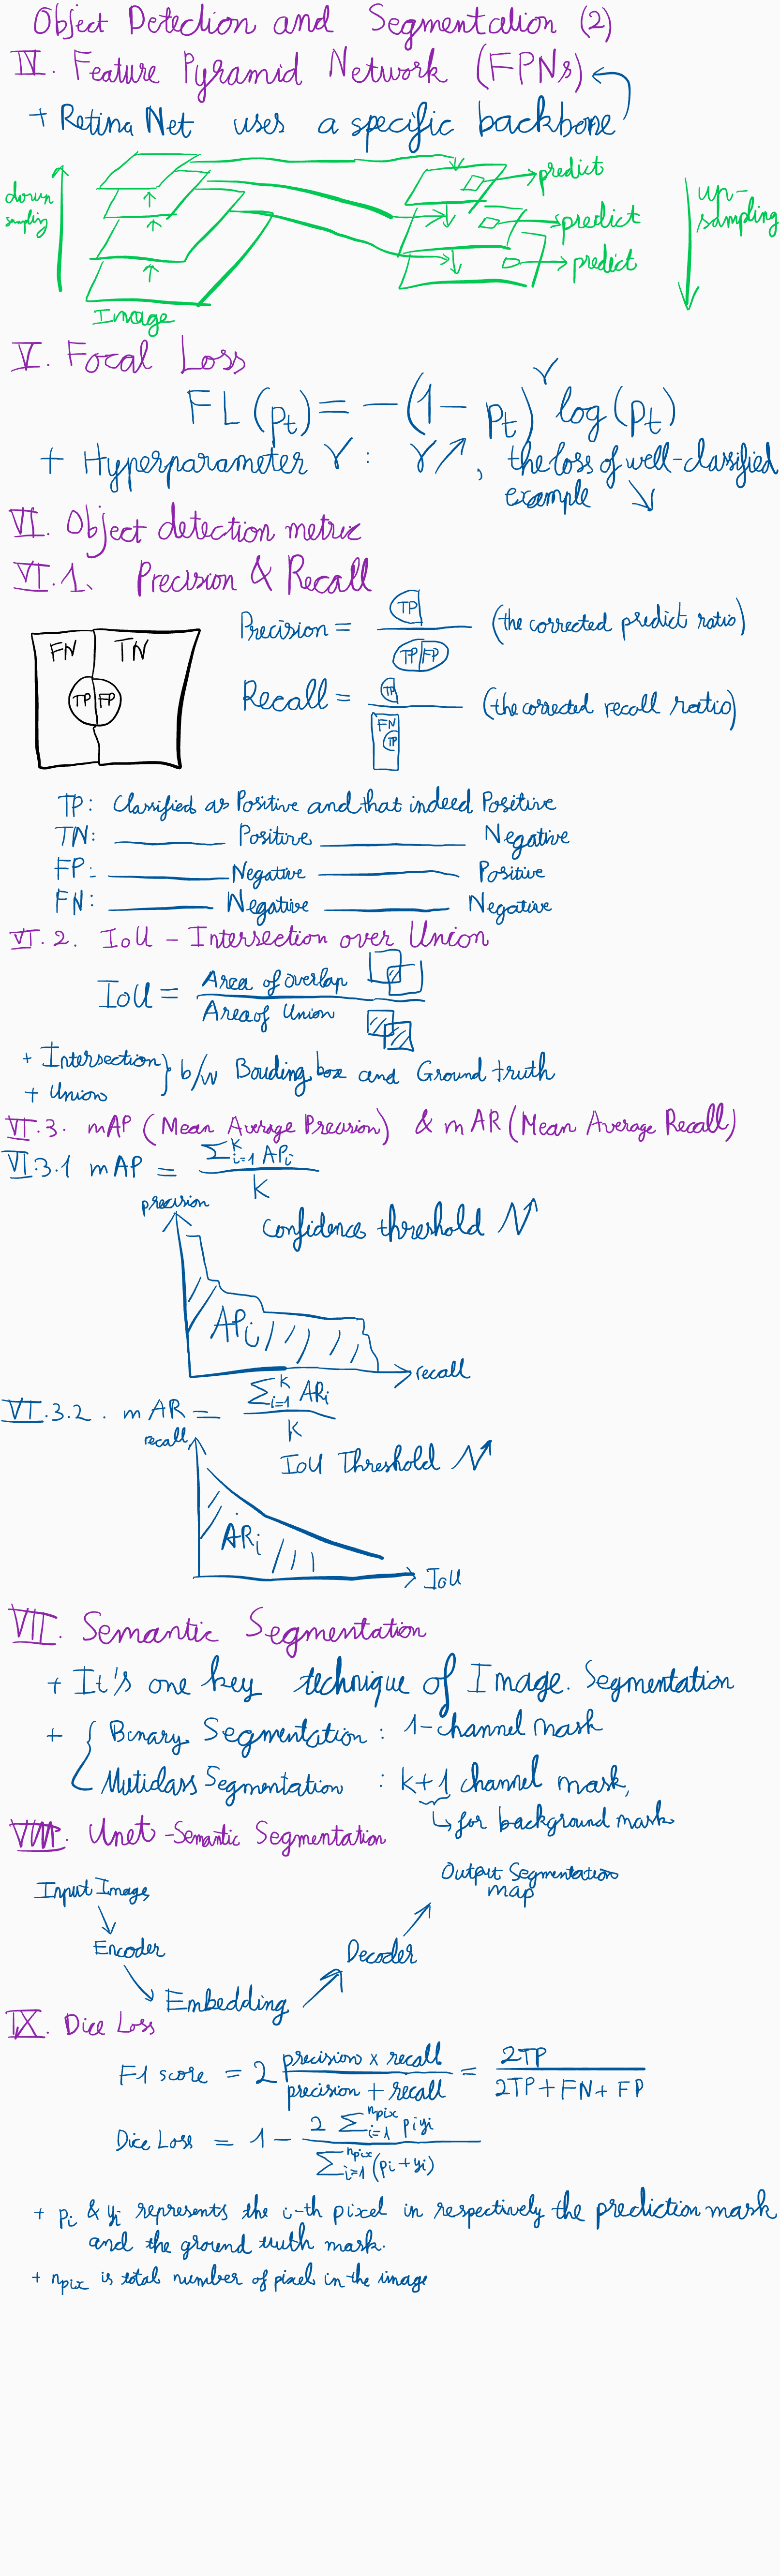 Object Detection and Segmentation (2)
IV. Feature Pyramid Network (FPNs)
+ Retina Net uses a specific backbone
down sampling
predict
predict
predict
up-sampling
Image
V. Focal Loss
FL(pt) = -(1 - pt)^γ log(pt)
+ Hyperparameter γ : γ ↗, the loss of well-classified
example ↘
VI. Object detection metric
VI.1. Precision & Recall
FN TN
TP FP
Precision = TP / TP FP (the corrected predict ratio)
Recall = TP / FN TP (the corrected recall ratio)
TP: Classified as Positive and that indeed Positive
TN: ——— Positive ——— Negative
FP: ——— Negative ——— Positive
FN: ——— Negative ——— Negative
VI.2. IoU - Intersection over Union
IoU = Area of overlap / Area of Union
+ Intersection
+ Union
} b/w Bouding box and Ground truth
VI.3. mAP (Mean Average Precision) & mAR (Mean Average Recall)
VI.3.1 mAP = ∑_{i=1}^{K} APi / K
precision
Confidence threshold ↗
APi
recall
VI.3.2. mAR = ∑_{i=1}^{K} ARi / K
recall
IoU Threshold ↗
ARi
IoU
VII. Semantic Segmentation
+ It's one key technique of Image. Segmentation
+ { Binary Segmentation : 1-channel mask
Muticlass Segmentation : k+1 channel mask,
↳ for background mask
VIII. Unet - Semantic Segmentation
Input Image
Output Segmentation
map
Encoder
Decoder
Embedding
IX. Dice Loss
F1 score = 2 precision x recall / precision + recall = 2TP / 2TP + FN + FP
Dice Loss = 1 - 2 ∑_{i=1}^{npix} piyi / ∑_{i=1}^{npix} (pi + yi)
+ pi & yi represents the i-th pixel in respectively the prediction mask
and the ground truth mask.
+ npix is total number of pixel in the image